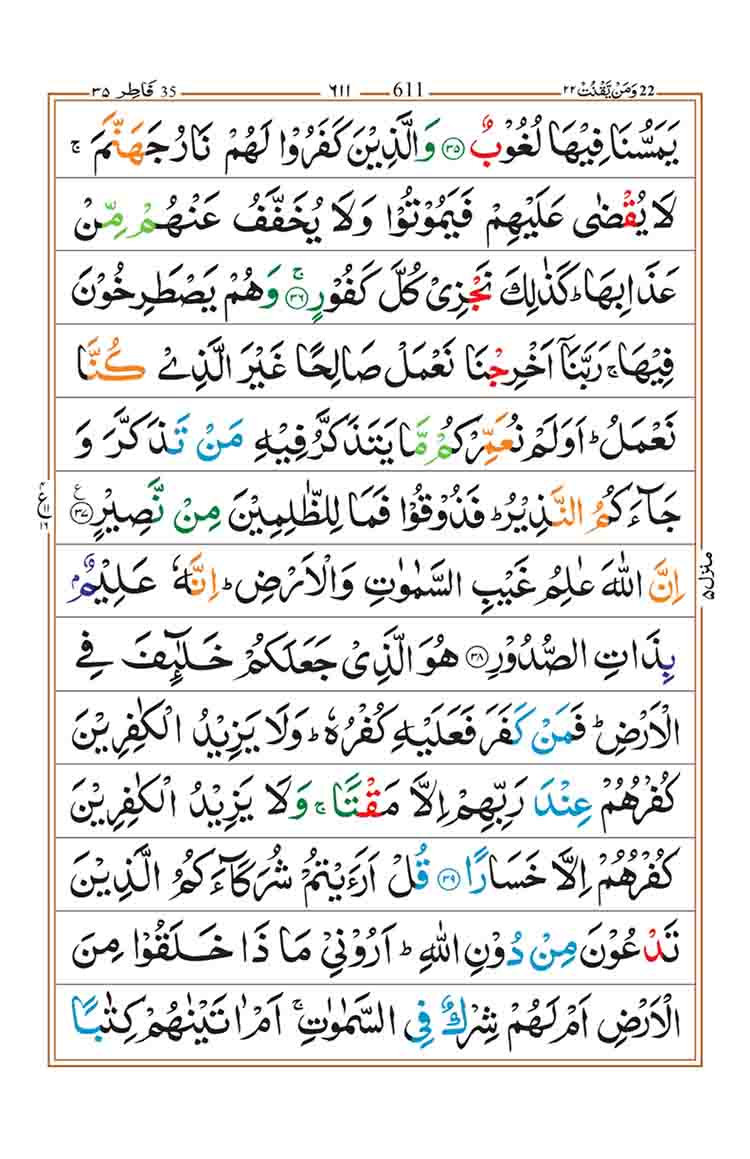 35 فَاطِر ٣٥ ٦١١ 611 22 وَمَنْ يَّقْنُتْ ٢٢
يَمَسُّنَا فِيْهَا لُغُوْبٌ ۝٣٥ وَالَّذِيْنَ كَفَرُوْا لَهُمْ نَارُ جَهَنَّمَ ۚ
لَا يُقْضٰى عَلَيْهِمْ فَيَمُوْتُوْا وَلَا يُخَفَّفُ عَنْهُمْ مِّنْ
عَذَابِهَا ؕ كَذٰلِكَ نَجْزِىْ كُلَّ كَفُوْرٍ ۚ ۝٣٦ وَهُمْ يَصْطَرِخُوْنَ
فِيْهَا ۚ رَبَّنَاۤ اَخْرِجْنَا نَعْمَلْ صَالِحًا غَيْرَ الَّذِىْ كُنَّا
نَعْمَلُ ؕ اَوَلَمْ نُعَمِّرْكُمْ مَّا يَتَذَكَّرُ فِيْهِ مَنْ تَذَكَّرَ وَ
جَآءَكُمُ النَّذِيْرُ ؕ فَذُوْقُوْا فَمَا لِلظّٰلِمِيْنَ مِنْ نَّصِيْرٍ ۝٣٧ ع
ع ١١ ١٦
اِنَّ اللّٰهَ عٰلِمُ غَيْبِ السَّمٰوٰتِ وَالْاَرْضِ ؕ اِنَّهٗ عَلِيْمٌۢ
منزل ٥
بِذَاتِ الصُّدُوْرِ ۝٣٨ هُوَ الَّذِىْ جَعَلَكُمْ خَلٰٓئِفَ فِى
الْاَرْضِ ؕ فَمَنْ كَفَرَ فَعَلَيْهِ كُفْرُهٗ ؕ وَلَا يَزِيْدُ الْكٰفِرِيْنَ
كُفْرُهُمْ عِنْدَ رَبِّهِمْ اِلَّا مَقْتًا ۚ وَلَا يَزِيْدُ الْكٰفِرِيْنَ
كُفْرُهُمْ اِلَّا خَسَارًا ۝٣٩ قُلْ اَرَءَيْتُمْ شُرَكَآءَكُمُ الَّذِيْنَ
تَدْعُوْنَ مِنْ دُوْنِ اللّٰهِ ؕ اَرُوْنِىْ مَا ذَا خَلَقُوْا مِنَ
الْاَرْضِ اَمْ لَهُمْ شِرْكٌ فِى السَّمٰوٰتِ ۚ اَمْ اٰتَيْنٰهُمْ كِتٰبًا